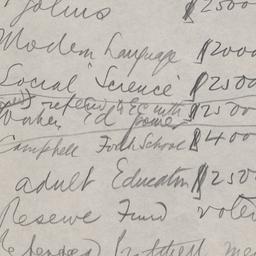 $2500
Modern Language $2000
Social Science $2500
refered to EC with $2500
Worker Ed power
Campbell Folk School $400
adult Education $250
Reserve Fund voted